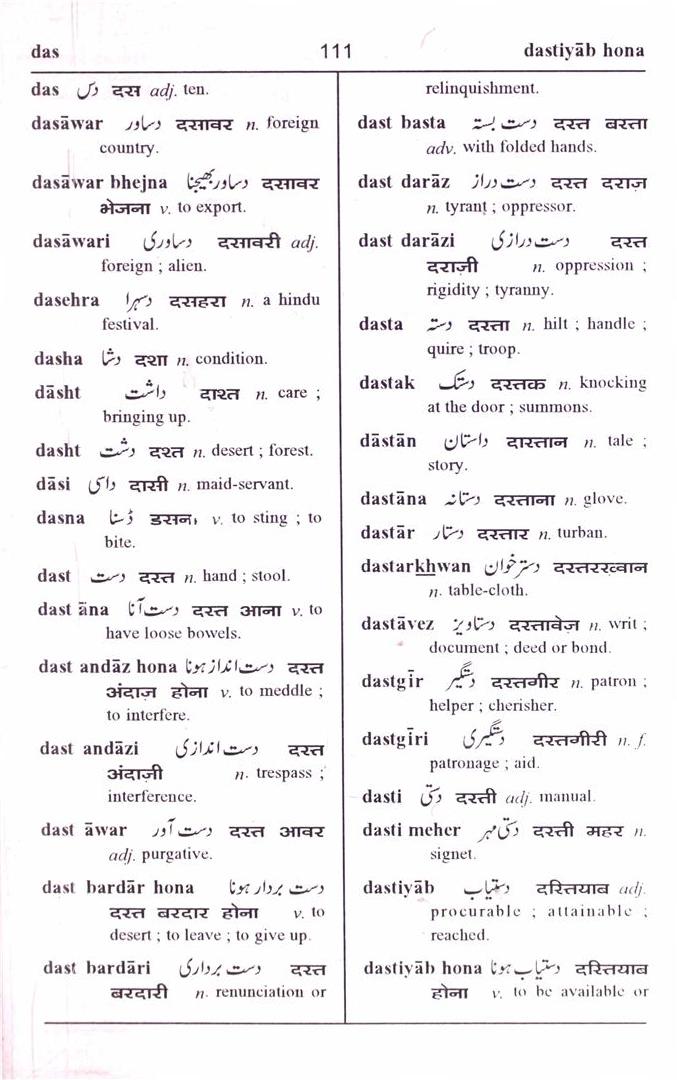 das 111 dastiyāb hona
das دس दस adj. ten.
dasāwar دساور दसावर n. foreign
country.
dasāwar bhejna دساور بھیجنا दसावर
भेजना v. to export.
dasāwari دساوری दसावरी adj.
foreign ; alien.
dasehra دسہرا दसहरा n. a hindu
festival.
dasha دشا दशा n. condition.
dāsht داشت दाश्त n. care ;
bringing up.
dasht دشت दश्त n. desert ; forest.
dāsi داسی दासी n. maid-servant.
dasna ڈسنا डसना v. to sting ; to
bite.
dast دست दस्त n. hand ; stool.
dast āna دست آنا दस्त आना v. to
have loose bowels.
dast andāz hona دست انداز ہونا दस्त
अंदाज़ होना v. to meddle ;
to interfere.
dast andāzi دست اندازی दस्त
अंदाज़ी n. trespass ;
interference.
dast āwar دست آور दस्त आवर
adj. purgative.
dast bardār hona دست بردار ہونا
दस्त बरदार होना v. to
desert ; to leave ; to give up.
dast bardāri دست برداری दस्त
बरदारी n. renunciation or
relinquishment.
dast basta دست بستہ दस्त बस्ता
adv. with folded hands.
dast darāz دست دراز दस्त दराज़
n. tyrant ; oppressor.
dast darāzi دست درازی दस्त
दराज़ी n. oppression ;
rigidity ; tyranny.
dasta دستہ दस्ता n. hilt ; handle ;
quire ; troop.
dastak دستک दस्तक n. knocking
at the door ; summons.
dāstān داستان दास्तान n. tale ;
story.
dastāna دستانہ दस्ताना n. glove.
dastār دستار दस्तार n. turban.
dastarkhwan دسترخوان दस्तरख़्वान
n. table-cloth.
dastāvez دستاویز दस्तावेज़ n. writ ;
document ; deed or bond.
dastgīr دستگیر दस्तगीर n. patron ;
helper ; cherisher.
dastgīri دستگیری दस्तगीरी n. f.
patronage ; aid.
dasti دستی दस्ती adj. manual.
dasti meher دستی مہر दस्ती महर n.
signet.
dastiyāb دستیاب दस्तियाब adj.
procurable ; attainable ;
reached.
dastiyāb hona دستیاب ہونا दस्तियाब
होना v. to be available or